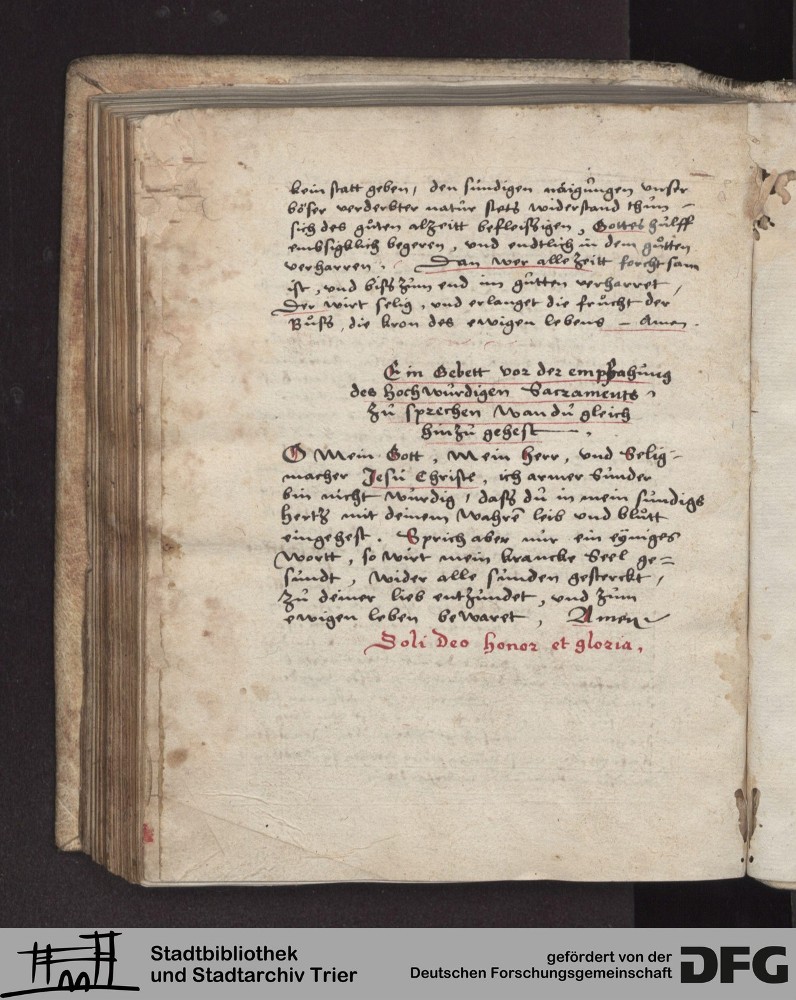 kein statt geben, den sündigen näigungen unser
böser verderbter natur stets widerstand thun –
sich des guten alzeitt befleissigen, Gottes hülff
embsigklich begeren, und endtlich in dem gutten
verharren. Dan wer alle zeitt forchtsam
ist, und biss zum end im gutten verharret,
Der wirt selig, und erlanget die frücht der
Buss, die kron des ewigen lebens – Amen.
Ein Gebett vor der empfahung
des Hochwürdigen Sacraments,
zu sprechen wan du gleich
hinzu gehest
O Mein Gott, Mein Herr, und Selig-
macher Jesu Christe, ich armer Sünder
bin nicht würdig, dass du in mein sündigs
hertz mit deinem wahrē leib und blutt
eingehest. Sprich aber nur ein eyniges
wortt, so wirt mein krancke Seel ge=
sundt, wider alle sünden gesterckt,
zu deiner lieb entzündet, und zum
ewigen leben bewaret, Amen
Soli Deo honor et gloria,
Stadtbibliothek
und Stadtarchiv Trier
gefördert von der
Deutschen Forschungsgemeinschaft
DFG